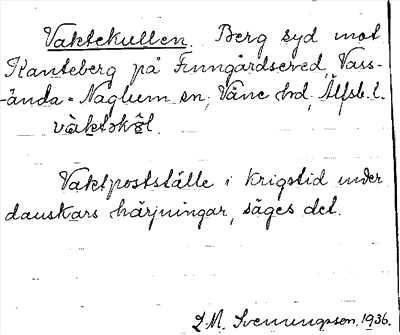 Vaktekullen. Berg syd mot
Kanteberg på Funngårdsered, Vass-
-ända-Naglum sn, Väne hd, Älfsb. l.
vàktəkɷ̂l.
Vaktpostställe i krigstid under
danskars härjningar, säges det.
D.M. Svenungsson. 1936.